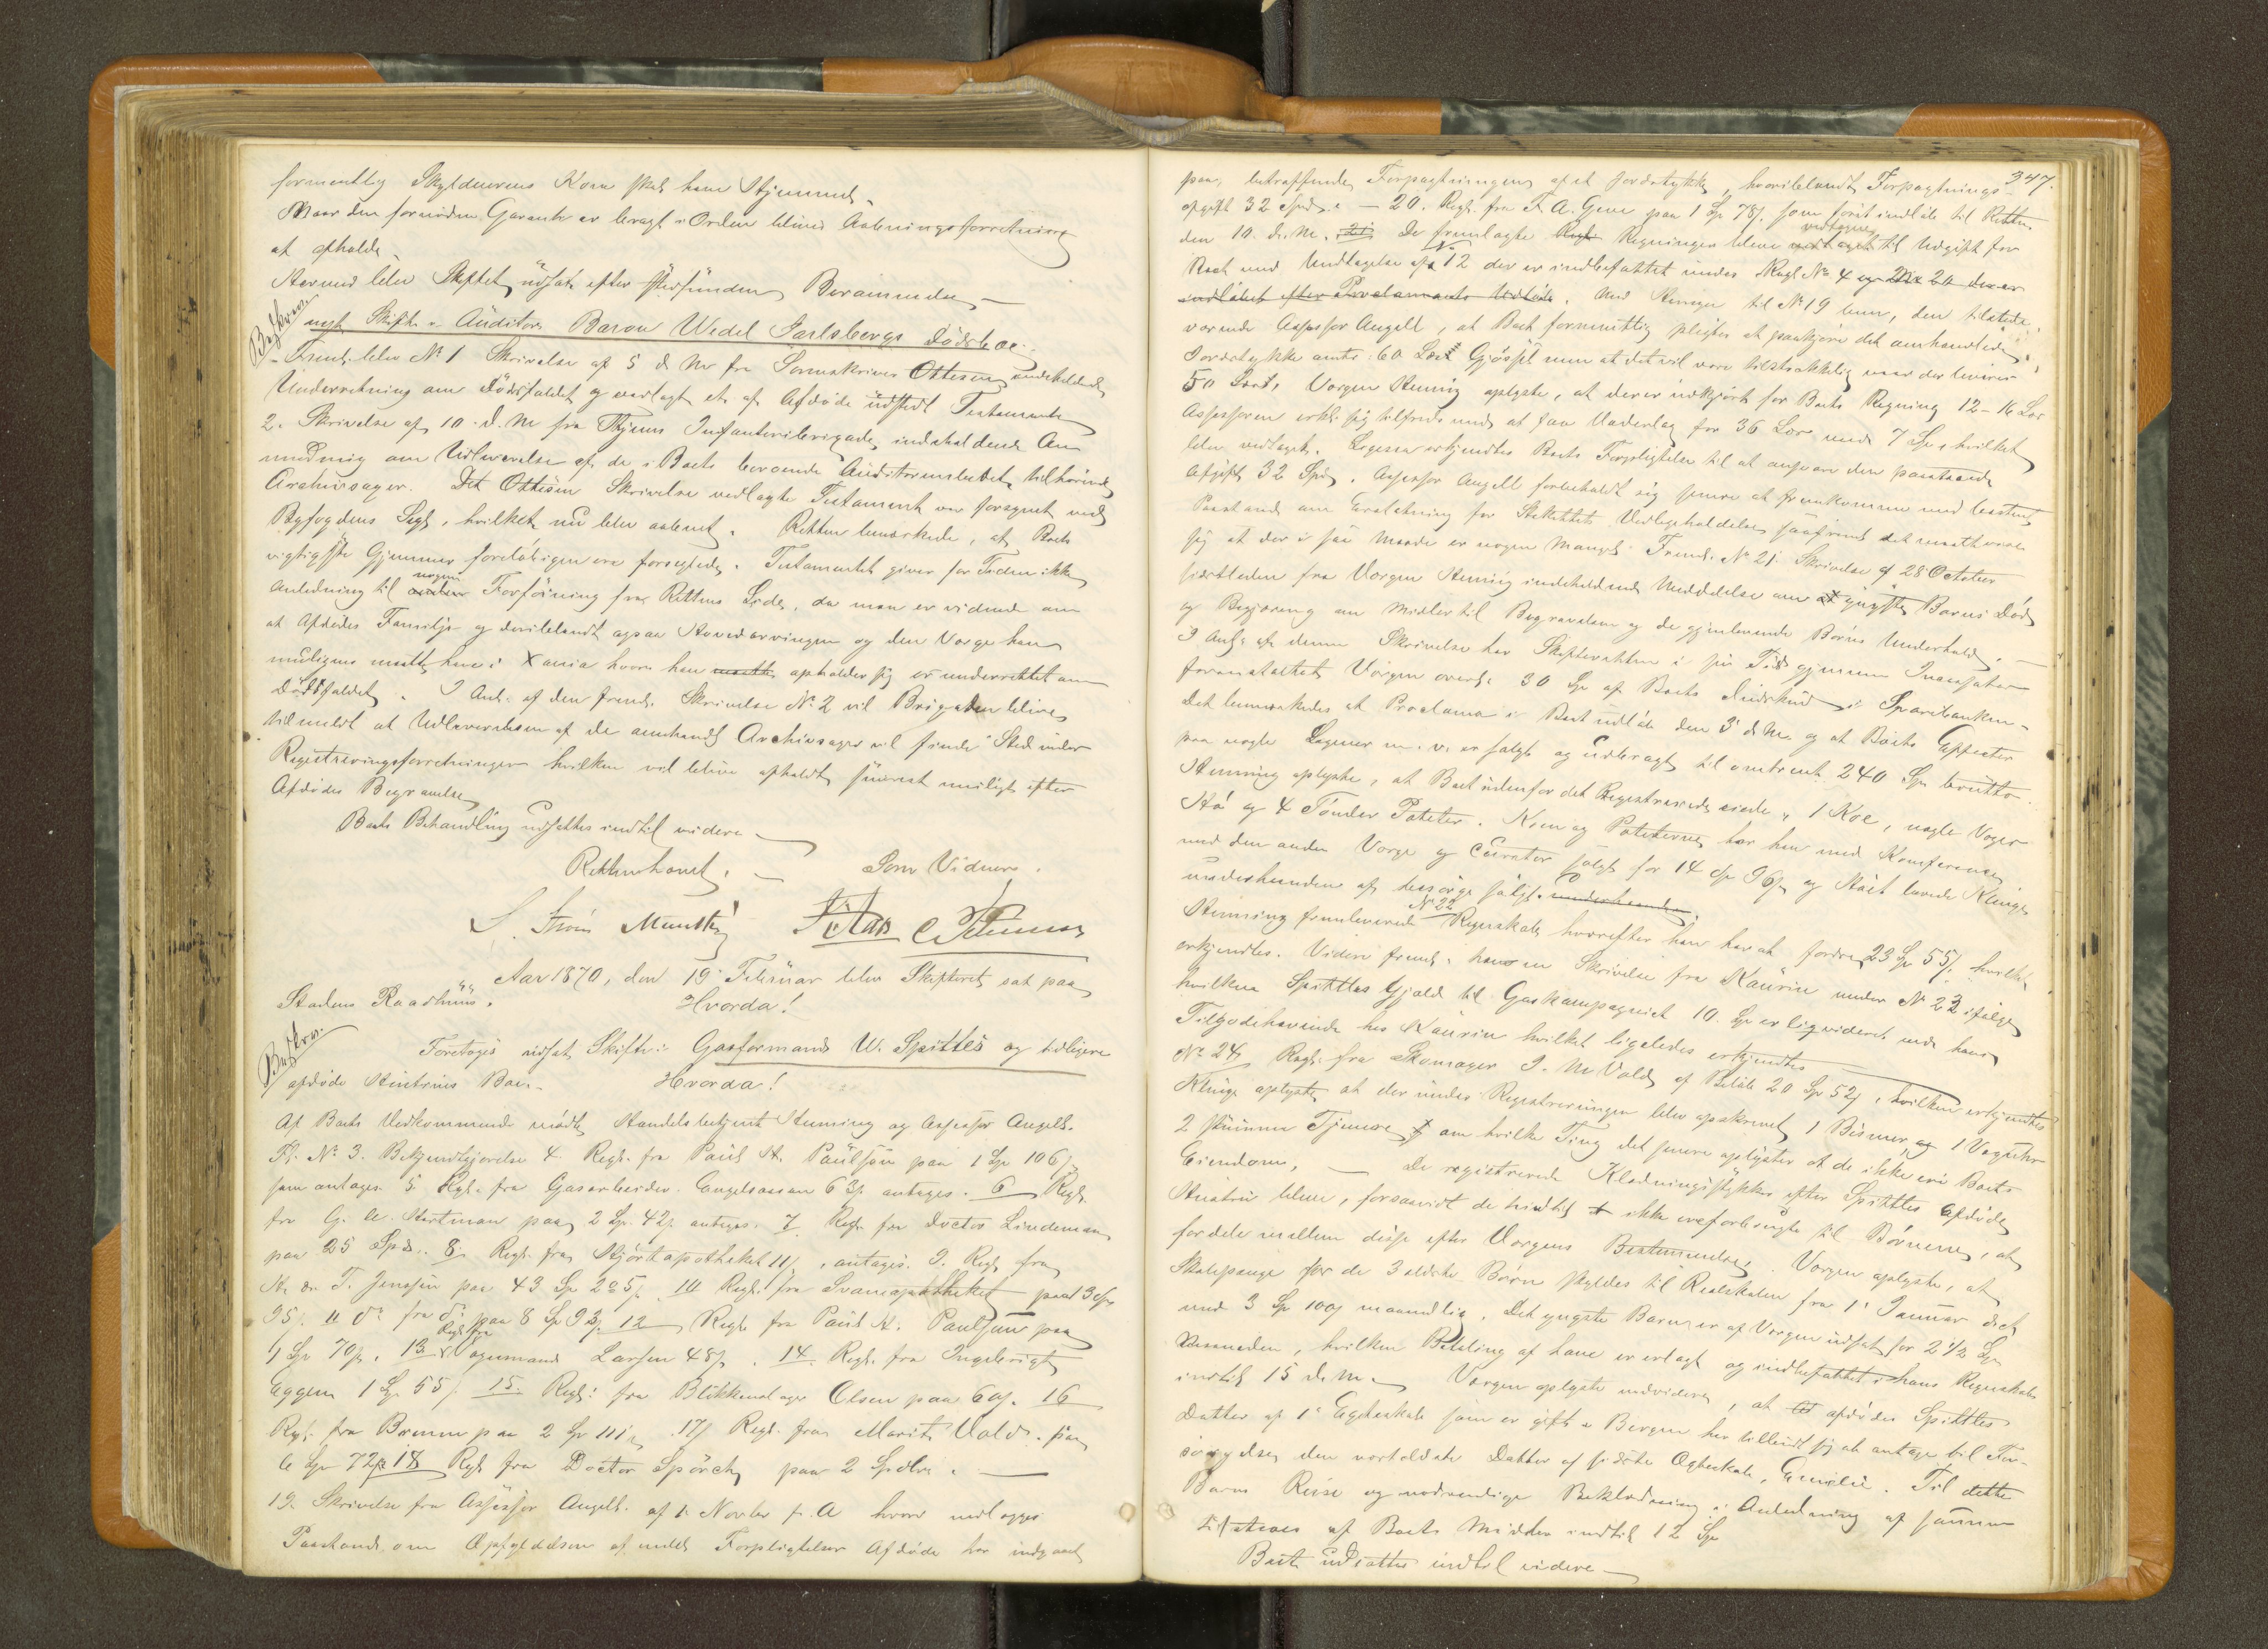 formentlig Skyldnerens Kone skal have Hjemmel.
Naar den fornødne Garanti er bragt i Orden bliver Aabningsforretning
at afholde.
Hermed blev Skiftet udsat efter stedfunden Berammelse —
nyt Skifte i Auditør Baron Wedel Jarlsbergs Dødsboe:
Freml. blev No 1 Skrivelse af 5 d M fra Sorenskriver Ottesen indeholdende
Underretning om Dødsfaldet og vedlagt et af Afdøde udstedt Testamente
2. Skrivelse af 10 d. M fra Thjems Infanteribrigade indeholdende An
modning om Udleverelse af de i Boets beroende Auditørembedet tilhørende
Archivsager. Det Ottesens Skrivelse vedlagte Testament var forsegnet med
Byfogdens Segl, hvilket nu blev aabnet. Retten bemærkede, at Boets
vigtigste Gjemmer foreløbigen ere forseglede. Testamentet giver for Tiden ikke
Anledning til nogen Forføining fra Rettens Side, da man er vidende om
at Afdødes Familje og deriblandt ogsaa Hovedarvingen og den Værge han
muligens maatte have i Xania hvor han opholder sig er underrettet om
Dødsfaldet. I Anl. af den freml. Skrivelse No 2 vil Brigaden blive
tilmeldt at Udleverelsen af de omhandl. Archivsager vil finde Sted under
Registreringsforretningen hvilken vil blive afholdt snarest muligt efter
Afdødes Begravelse
Boets Behandling udsættes indtil videre —
Retten hævet. — Som Vidner.
Aar 1870, den 19 Februar blev Skifteret sat paa
Stadens Raadhuus. Hvorda!
Foretoges udsat Skifte i Gasformand W. Spittles og tidligere
afdøde Hustrues Boe. Hvorda!
Af Boets Vedkommende mødte Handelsbetjent Henning og Assessor Angell.
Fl. No 3. Bekjendtgjørelse 4. Regn. fra Paul H. Paulsen paa 1 Sp 106
som antages 5. Rgn. fra Gasarbeider Engelsaas 63 antages. 6 Regn.
fra G. A. Hartman paa 2 Sp. 42 antages. 7. Regn. fra Doctor Lindeman
paa 25 Spd. 8. Regn. fra Hjorteapotheket 11, antages. 9. Regn. fra
T. Jenssen paa 43 Sp 5 10 Regn. fra Svaneapotheket paa 13 Sp
95. 11 do fra do paa 8 Sp 93. 12 Regn. fra Paul H. Paulsen paa
1 Sp 70. 13 Regn. fra Vognmand Larsen 48. 14. Regn. fra Ingebrigt
Eggen 1 Sp 55 15. Regn: fra Blikkenslager Olsen paa 60. 16
Regn. fra Bromm paa 2 Sp 111 17 Regn. fra Marit Vold. paa
6 Sp 72 18 Regn. fra Doctor Spørck paa 2 Spdlr. —
19. Skrivelse fra Assessor Angell af 1 Novbr f. A hvori nedlægges
Paastand om Opfyldelsen af nedl. Forpligtelser Afdøde har indgaaet
347.
paa, betræffende Forpagtningen af et Jordstykke, hvoriblandt Forpagtnings-
afgift 32 Spd. — 20. Regn. fra F. A. Gjeve paa 1 Sp 78 som først indløb til Retten
den 10. d. M. De fremlagte Regninger bleve vedtagne til Udgift for
Boet med Undtagelse af No 12 der er indbefattet under Regn No 4 og No 20 der er
indløbet efter Proclamaets Udløb. Med Hensyn til No 19 , den tilstede-
værende Assessor Angell, at Boet formentlig pligter at paakjøre det omhandlede
Jordstykke 60 Læs Gjødsel men at det vil være tilstrækkelig naar der leveres
50 Læs. Værgen Henning oplyste, at der er indkjørt for Boets Regning 12-16 Læs
Assessoren erkl. sig tilfreds med at faa Vederlag for 36 Læs med 7 Sp. hvilket
blev vedtaget. Ligesaa erkjendtes Boets Forpligtelse til at ansvare den paastaaede
Afgift 32 Spd. Assessor Angell forbeholdt sig senere at fremkomme med bestemt
Paastand om Erstatning for Stakittets Vedligeholdelse saafremt det maatte vise
sig at der i saa Maade er nogen Mangel. Freml. No 21. Skrivelse af 28 October
sidstleden fra Værgen Henning indeholdende Meddelelse om yngste Barns Død
og Begjæring om Midler til Begravelsen og de gjenlevende Børns Underhold. —
I Anl. af denne Skrivelse har Skifteretten i sin Tid gjennem Incassator
foranstaltet Værgen overs. 30 Sp af Boets Indskud i Sparebanken —
Det bemærkedes at Proclama i Boet udløb den 3 d M. og at Boets Effecter
paa nogle Bøger m. v. er solgt og udbragt til omtrent 240 Sp brutto.
Henning oplyste, at Boet udenfor det Registrerede eiede 1 Koe, nogle Voger
Hø og 4 Tønder Poteter. Koen og Poteterne har han med Konference
med den anden Værge og Curator solgt for 14 Sp 96 og Høet lovede Klinge
underhaanden at besørge solgt.
Henning fremleverede No 22 Regnskab hvorefter han har at fordre 23 Sp 55, hvilket
erkjendtes. Videre freml. han en Skrivelse fra Kaurin under No 23 ifølge
hvilken Spittles Gjæld til Gaskompagniet 10. Sp er liqvideret med hans
Tilgodehavende hos Kaurin hvilket ligeledes erkjendtes
No 24 Regn. fra Skomager I. M Vold af Beløb 20 Sp 52, hvilken erkjendtes
Klinge oplyste at der under Registreringen blev opskrevet 1 Bismer, og 1 Væguhr
2 Tjenere om hvilke Ting det senere oplystes at de ikke ere Boets
Eiendom, — De registrerede Klædningsstykker efter Spittles afdøde
Hustru bleve, forsaavidt de hidtil ikke ere forbrugte til Børnene, at
fordele mellem disse efter Værgens Bestemmelse. Værgen oplyste, at
Skolepenge for de 3 ældste Børn skyldes til Realskolen fra 1 Januar
med 3 Sp 100 maanedlig. Det yngste Barn er af Værgen udsat for 2½ Sp
Maaneden, hvilken Betaling af ham er erlagt og indbefattet i hans Regnskab
indtil 15 d. M. Værgen oplyste endvidere, at afdødes Spittles
Datter af 1 Egteskab som er gift i Bergen har tilbudt sig at antage til For-
sørgelse den næstældste Datter af sidste Egteskab, Emilie. Til dette
Barns Reise og nødvendige Beklædning i Anledning af samme
tilstaaes af Boets Midler indtil 12 Sp
Boet udsattes indtil videre —